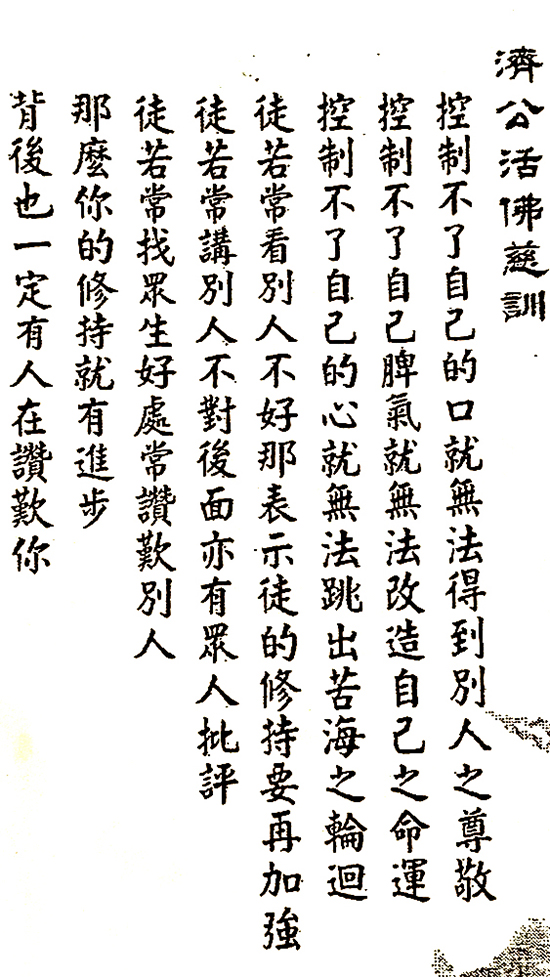 濟公活佛慈訓
控制不了自己的口就無法得到別人之尊敬
控制不了自己脾氣就無法改造自己之命運
控制不了自己的心就無法跳出苦海之輪迴
徒若常看別人不好那表示徒的修持要再加強
徒若常講別人不對後面亦有眾人批評
徒若常找眾生好處常讚歎別人
那麼你的修持就有進步
背後也一定有人在讚歎你